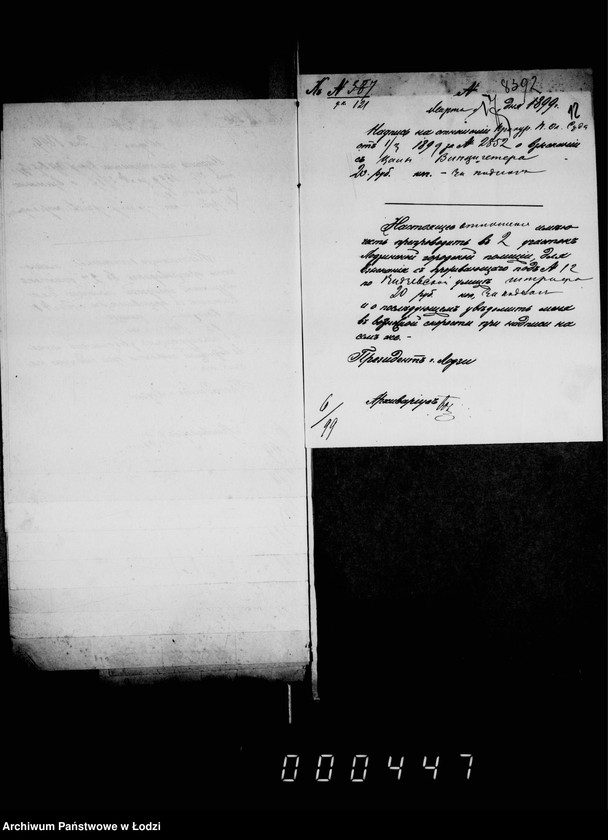 К № 387
за 121
№ 8392
Марта 17 дня 1899.
12
Надпись на отношении Прокур. П. Ок. Суда
отъ 1/3 1899 за № 2852 о взыскании
съ
20 руб. коп. –
Настоящее отношение имею
честь препроводить въ 2 участокъ
Лодзинской городской полиции, для
взыскания съ проживающаго подъ № 12
по улице
20 руб. коп.
и о последующемъ уведомить меня
въ возможной скорости при надписи на
семъ же. –
Президентъ г. Лодзи
Архивариусъ
6/99
000447
Archiwum Państwowe w Łodzi